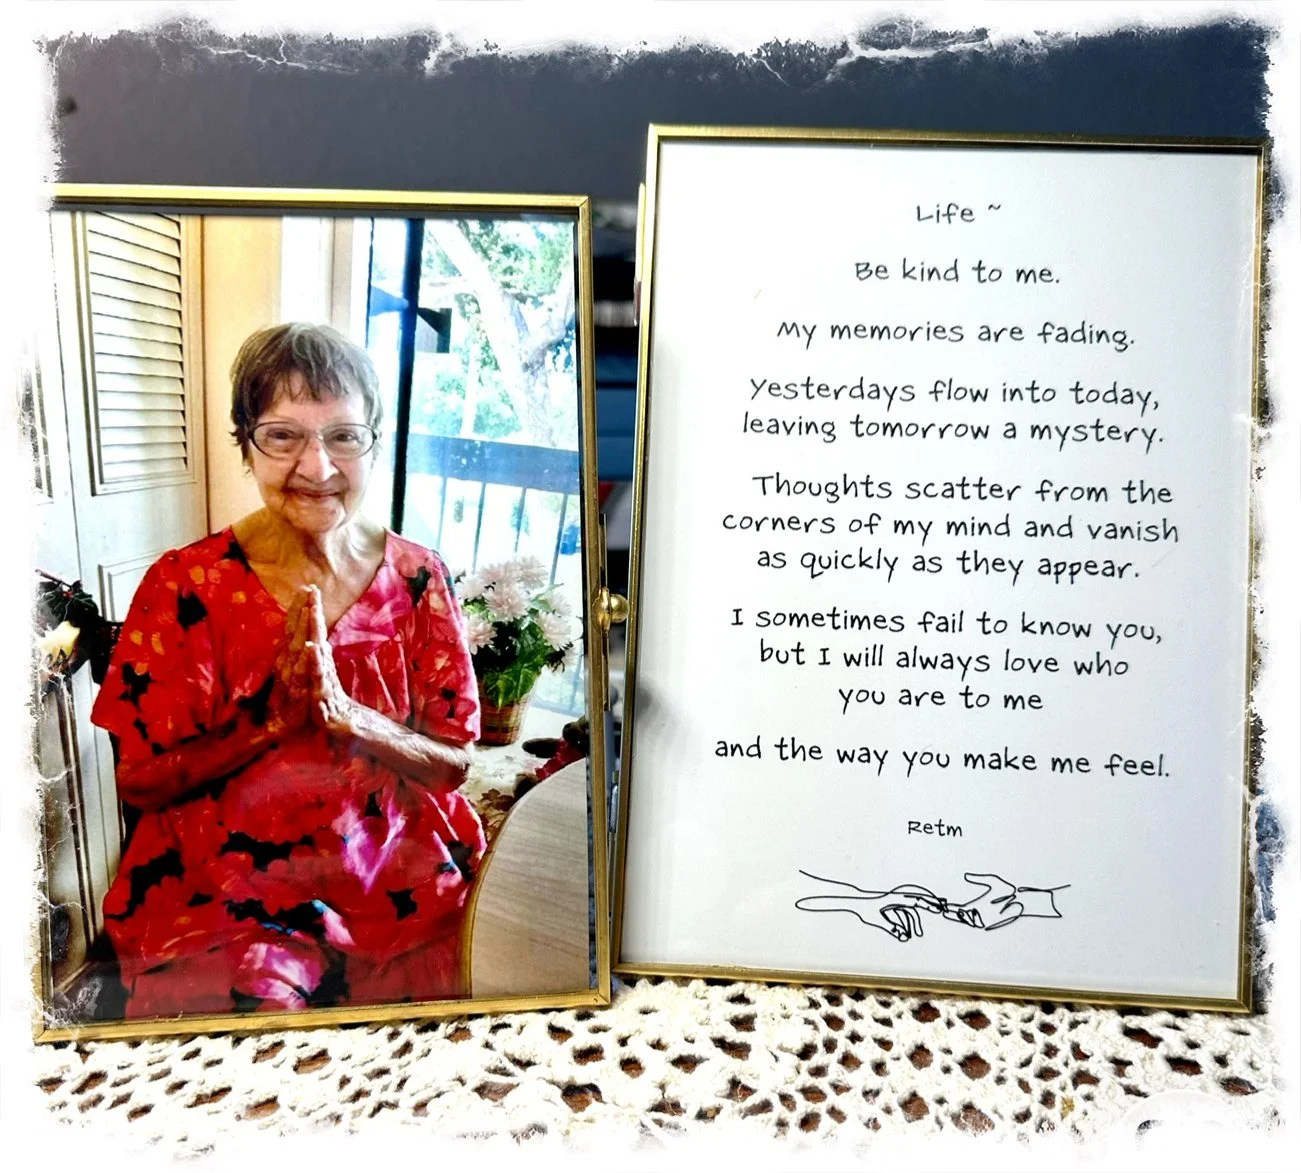 Life ~
Be kind to me.
My memories are fading.
Yesterdays flow into today,
leaving tomorrow a mystery.
Thoughts scatter from the
corners of my mind and vanish
as quickly as they appear.
I sometimes fail to know you,
but I will always love who
you are to me
and the way you make me feel.
Retm